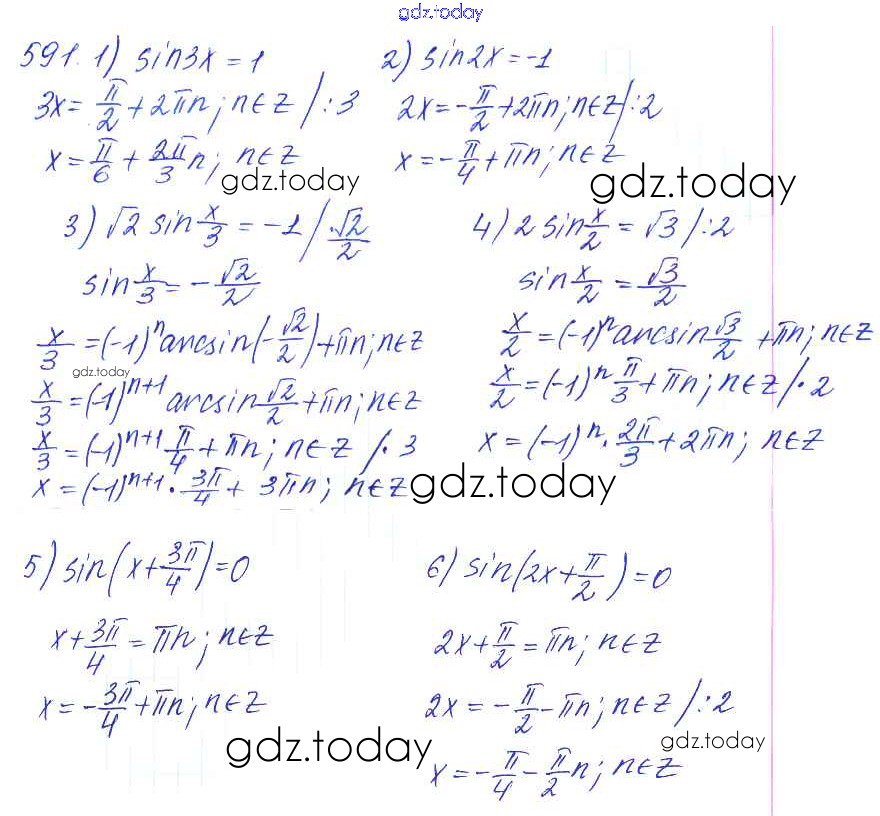 gdz.today
591. 1) sin3x = 1
3x = π/2 + 2πn; n∈Z /:3
x = π/6 + 2π/3 n; n∈Z
gdz.today
2) sin2x = -1
2x = -π/2 + 2πn; n∈Z /:2
x = -π/4 + πn; n∈Z
gdz.today
3) √2 sin x/3 = -1 / ·√2/2
sin x/3 = -√2/2
x/3 = (-1)ⁿ arcsin(-√2/2) + πn; n∈Z
gdz.today
x/3 = (-1)ⁿ⁺¹ arcsin √2/2 + πn; n∈Z
x/3 = (-1)ⁿ⁺¹ π/4 + πn; n∈Z /·3
x = (-1)ⁿ⁺¹ · 3π/4 + 3πn; n∈Z
gdz.today
4) 2 sin x/2 = √3 /:2
sin x/2 = √3/2
x/2 = (-1)ⁿ arcsin √3/2 + πn; n∈Z
x/2 = (-1)ⁿ π/3 + πn; n∈Z /·2
x = (-1)ⁿ · 2π/3 + 2πn; n∈Z
5) sin(x + 3π/4) = 0
x + 3π/4 = πn; n∈Z
x = -3π/4 + πn; n∈Z
gdz.today
6) sin(2x + π/2) = 0
2x + π/2 = πn; n∈Z
2x = -π/2 - πn; n∈Z /:2
gdz.today
x = -π/4 - π/2 n; n∈Z